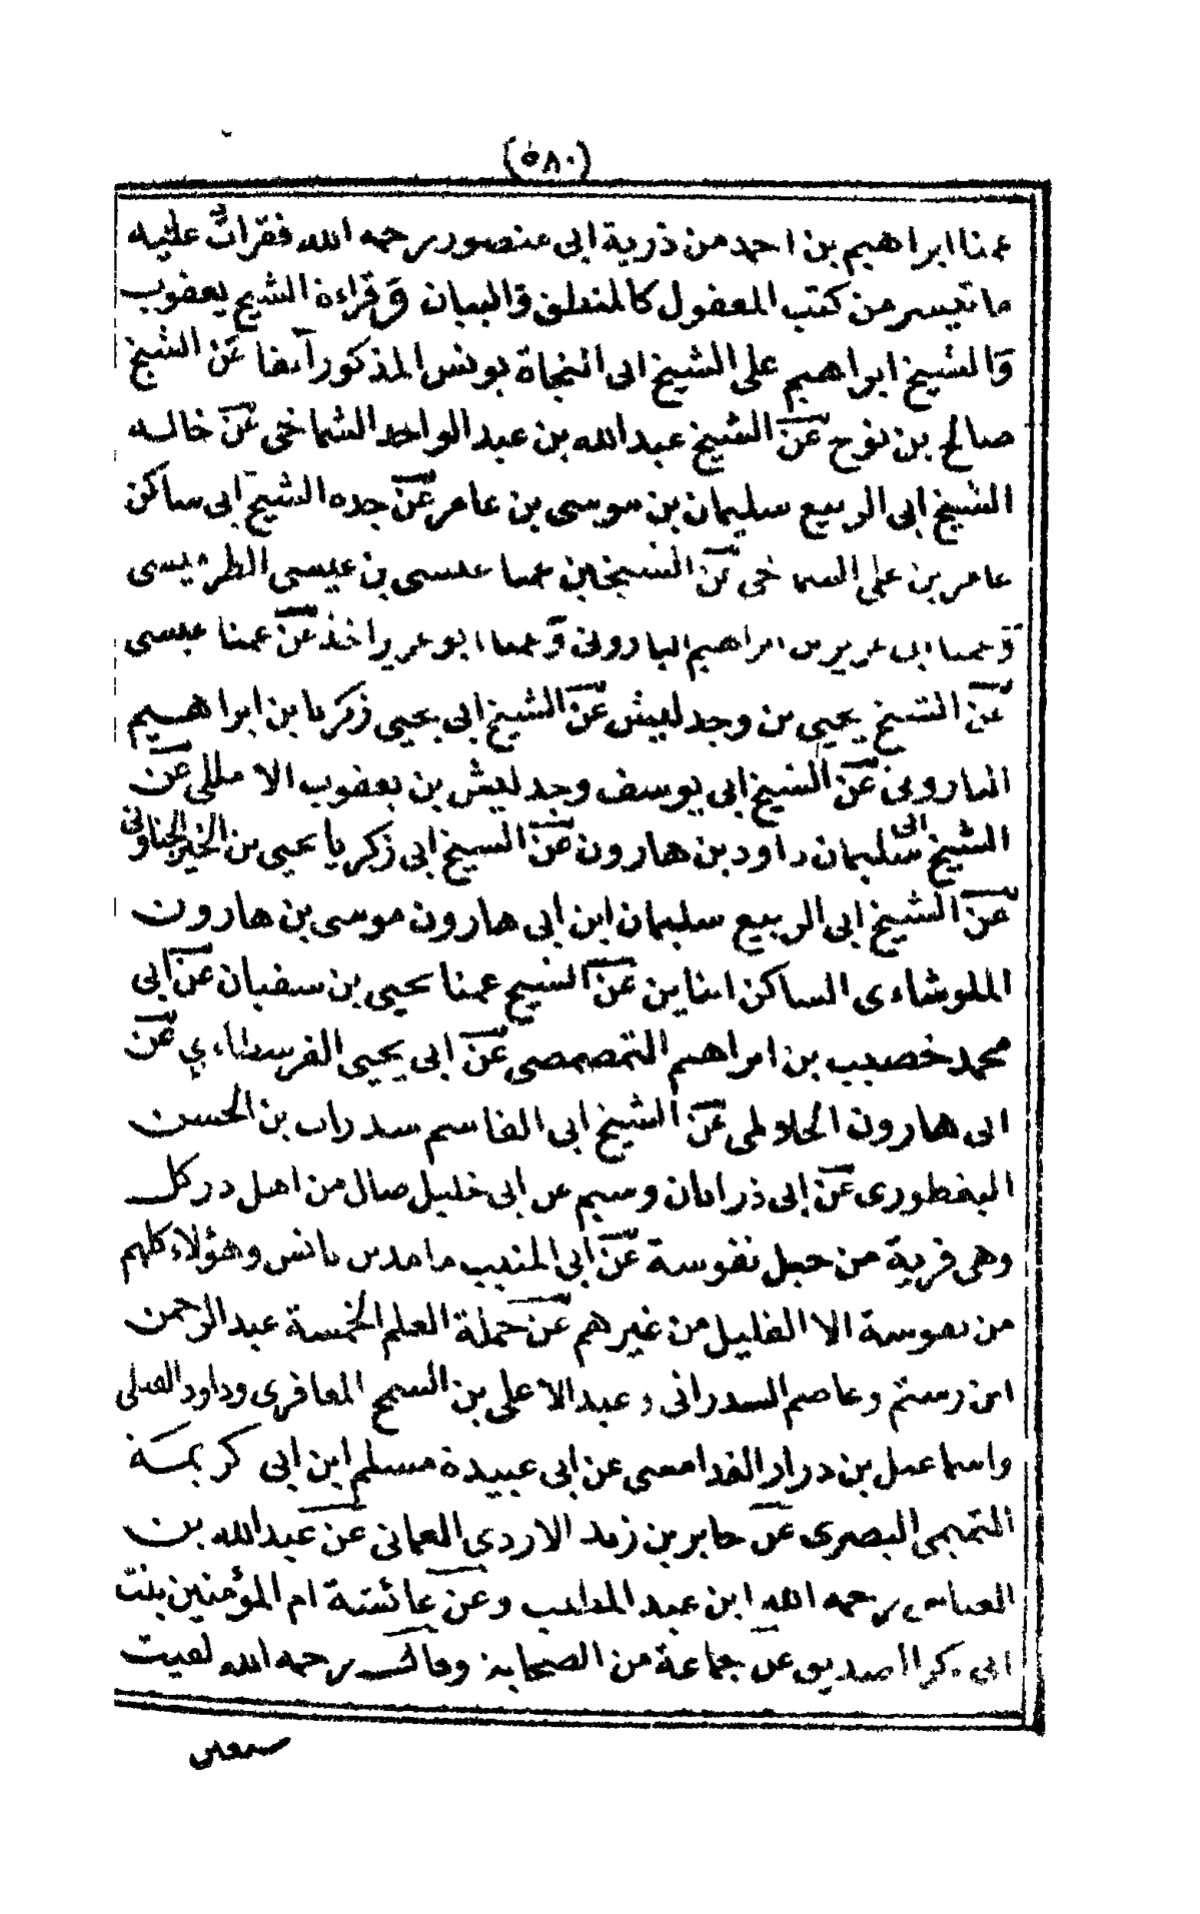 (٥٨٠)
عمنا ابراهيم بن احمد من ذرية ابى منصور رحمه الله فقرات عليه
ما تيسر من كتب المعقول كالمنطق والبيان وقراءة الشيخ يعقوب
والشيخ ابراهيم على الشيخ ابى النجاة يونس المذكور آنفا عن الشيخ
صالح بن نوح عن الشيخ عبد الله بن عبد الواحد الشماخى عن خاله
الشيخ ابى الربيع سليمان بن موسى بن عامر عن جده الشيخ ابى ساكن
عامر بن على الشماخى عن الشيخين عمنا عيسى بن عيسى الطرميسى
وعمنا ابى عزيز بن ابراهيم الباروني وعمنا ابو عزيز اخذ عن عمنا عيسى
عن الشيخ يحيى بن وجدليش عن الشيخ ابى يحيى زكريا بن ابراهيم
الباروني عن الشيخ ابى يوسف وجدليش بن يعقوب الاملى عن
الشيخ ابى سليمان داود بن هارون عن الشيخ ابى زكريا يحيى بن الخير الجناوني
عن الشيخ ابى الربيع سليمان ابن ابى هارون موسى بن هارون
الملوشاءى الساكن ابناين عن الشيخ عمنا يحيى بن سفيان عن ابى
محمد خصيب بن ابراهيم التمصمصى عن ابى يحيى الفرسطاءي عن
ابى هارون الجلالمى عن الشيخ ابى القاسم سدرات بن الحسن
البغطورى عن ابى ذر ابان وسيم عن ابى خليل صال من اهل دركل
وهى قرية من جبل نفوسة عن ابى المنيب مامد بن يانس وهؤلاء كلهم
من نفوسة الا القليل من غيرهم عن حملة العلم الخمسة عبد الرحمن
ابن رستم وعاصم السدراتى وعبد الاعلى بن السمح المعافرى وداود القبلى
واسماعيل بن درار الغدامسى عن ابى عبيدة مسلم ابن ابى كريمة
التميمى البصرى عن جابر بن زيد الازدى العمانى عن عبد الله بن
العباس رحمه الله ابن عبد المطلب وعن عائشة ام المؤمنين بنت
ابى بكر الصديق عن جماعة من الصحابة وقال رحمه الله لقيت
سبعين